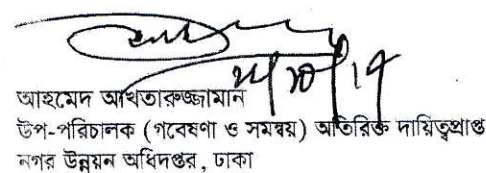 আহমেদ আখতারুজ্জামান
উপ-পরিচালক (গবেষণা ও সমন্বয়) অতিরিক্ত দায়িত্বপ্রাপ্ত
নগর উন্নয়ন অধিদপ্তর, ঢাকা